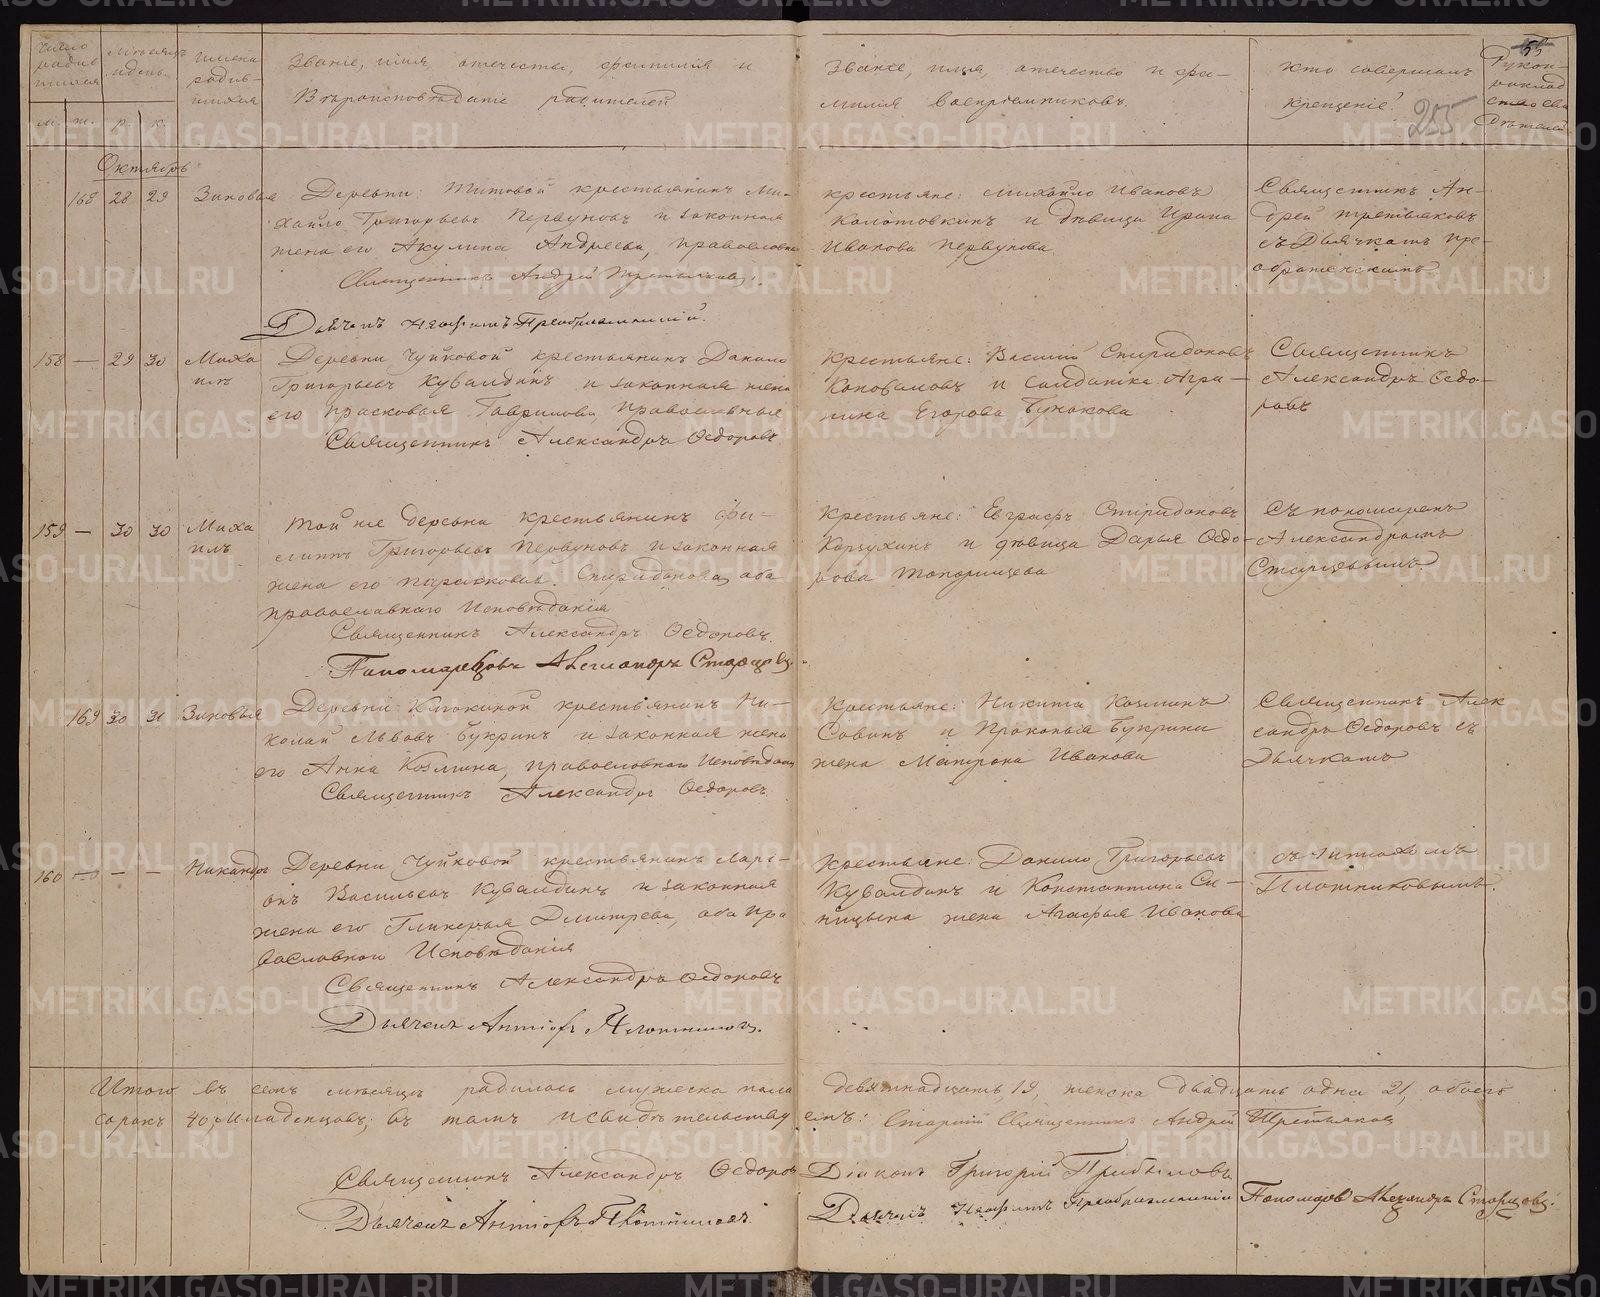 Число родив шихся
Мѣсяцъ и день
Имена родив- шихся
Званіе, имя, отечество, фамилія и
Вѣроисповѣданіе родителей
Званіе, имя, отечество и фа-
милія воспріемниковъ.
Кто совершалъ
крещеніе?
255
м. ж. р. к.
Октябрь
168 28 29 Зиновья
Деревни: Титовой крестьянинъ Ми-
хайло Григорьевъ Первуновъ и законная
жена его Акулина Андреева, православны
Священникъ Андрей Третьяковъ
Дьячекъ Преображенскій.
крестьяне: Михайло Ивановъ
Колотовкинъ и дѣвица Ирина
Иванова Первунова
Священникъ Ан-
дрей Третьяковъ
съ Дьячкомъ Пре-
ображенскимъ
158 — 29 30 Миха
илъ
Деревни Чуйковой крестьянинъ Данило
Григорьевъ Кувалдинъ и законная жена
его Прасковья Гаврилова, православныя
Священникъ Александръ Ѳедоровъ
Крестьяне: Василій Спиридоновъ
Коноваловъ и Салдатка Агри-
пина Егорова Бунакова
Священникъ
Александръ Ѳедо-
ровъ
159 — 30 30 Миха
илъ
Той же деревни крестьянинъ Фи-
липпъ Григорьевъ Первуновъ и законная
жена его Парасковья Спиридонова, оба
православнаго Исповѣданія
Священникъ Александръ Ѳедоровъ.
Александръ Старцовъ.
Крестьяне: Евграфъ Спиридоновъ
Карзухинъ и дѣвица Дарья Ѳедо-
рова Топорищева
съ пономаремъ
Александромъ
Старцевымъ
169 30 31 Зиновья
Деревни Клюкиной крестьянинъ Ни-
колай Львовъ Букринъ и законная жена
его Анна Козмина, православнаго Исповѣдан
Священникъ Александръ Ѳедоровъ
Крестьяне: Никита Козминъ
Савинъ и Прокопья Букрина
жена Матрона Иванова
Священникъ Алек
сандръ Ѳедоровъ съ
Дьячкомъ
160 — — — Никандръ
Деревни Чуйковой крестьянинъ Лари-
онъ Васильевъ Кувалдинъ и законная
жена его Гликерья Дмитрева, оба пра
вославнаго Исповѣданія
Священникъ Александръ Ѳедоровъ
Дьячекъ Антіохъ Плотниковъ.
Крестьяне: Данило Григорьевъ
Кувалдинъ и Константина Си-
ницына жена Агафья Иванова
Плотниковымъ.
Итого въ семъ мѣсяцѣ родилось мужеска пола девятнадцать 19, женска двадцать одна 21, обоего
сорокъ 40 Младенцовъ; въ томъ и свидѣтельствуемъ: Старшій Священникъ Андрей Третьяковъ
Священникъ Александръ Ѳедоровъ Діаконъ Григорій Прибыловъ
Дьячекъ Антіохъ Плотниковъ. Дьячекъ Преображенскій Пономарь Александръ Старцовъ.
METRIKI.GASO-URAL.RU